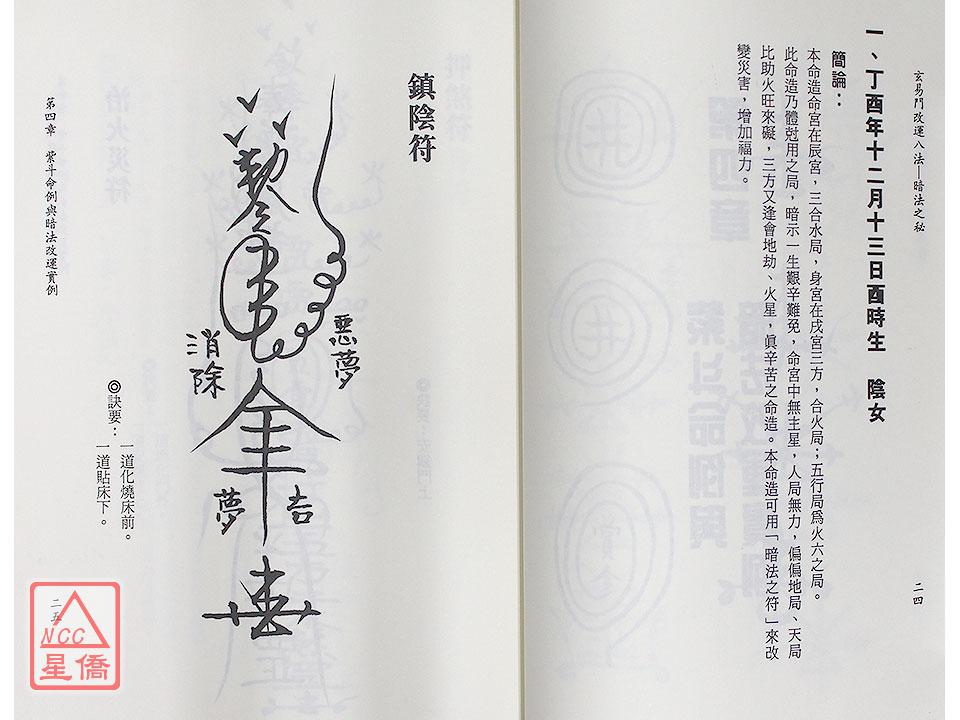 玄易門改運八法—暗法之秘
二四
一、丁酉年十二月十三日酉時生　陰女
簡論：
本命造命宮在辰宮，三合水局，身宮在戌宮三方，合火局；五行局為火六之局。
此命造乃體尅用之局，暗示一生艱辛難免，命宮中無主星，人局無力，偏偏地局、天局
比助火旺來礙，三方又逢會地劫、火星，真辛苦之命造。本命造可用「暗法之符」來改
變災害，增加福力。
鎮陰符
惡夢
消除
吉
夢
◎訣要：一道化燒床前。
一道貼床下。
第四章　紫斗命例與暗法改運實例
二五
NCC
星僑